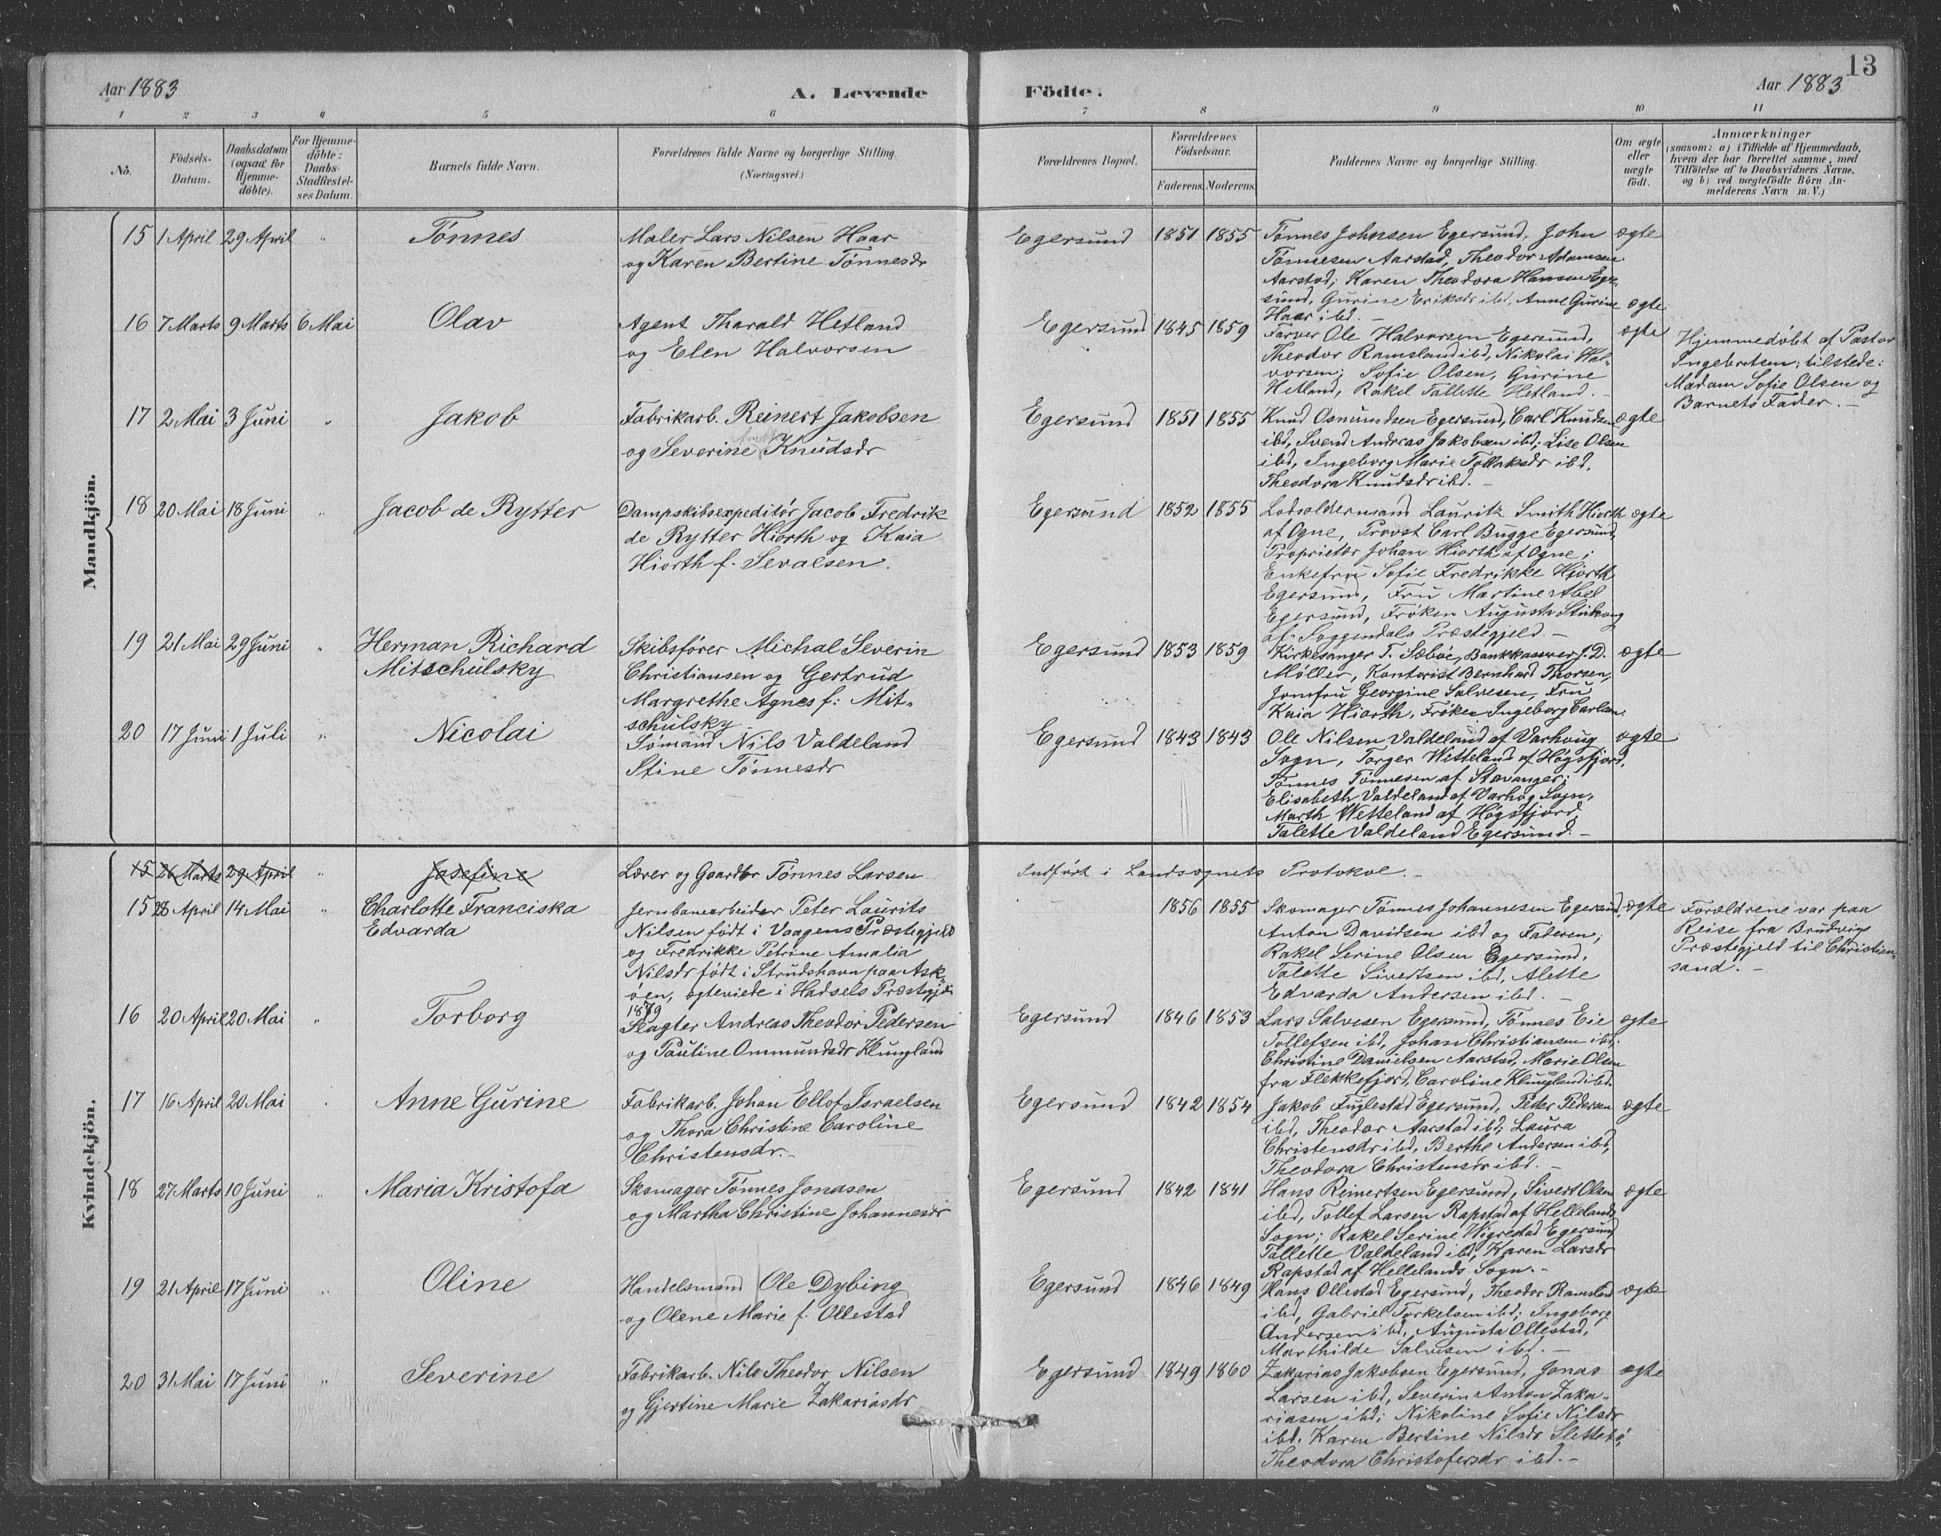 Aar 1883
A. Levende
Födte.
Aar 1883
13
1 2 3 4 5 6 7 8 9 10 11
No.
Födsels-
Datum.
Daabsdatum
(ogsaa for
Hjemme-
döbte).
For Hjemme-
döbte:
Daabs-
Stadfæstel-
ses Datum.
Barnets fulde Navn.
Forældrenes fulde Navne og borgerlige Stilling.
(Næringsvei.)
Forældrenes Bopæl.
Forældrenes
Födselsaar.
Faderens. Moderens.
Faddernes Navne og borgerlige Stilling.
Om ægte
eller
uægte
födt.
Anmærkninger
(saasom: a) i Tilfælde af Hjemmedaab,
hvem der har forrettet samme, med
Tilföielse af to Daabsvidners Navne,
og b) ved uægtefödte Börn An-
melderens Navn m. V.)
Mandkjön.
15 1 April 29 April " Tønnes
Maler Lars Nilsen Haar
og Karen Bertine Tønnesdr
Egersund 1851 1855
Tønnes Johnsen Egersund, John
Tønnesen Aarstad, Theodor Adamsen
Aarstad; Karen Theodora Hansen Eger-
sund, Gurine Eriksdr ibd, Anne Gurine
Haar ibd. –
ægte
ægte
16 7 Marts 9 Marts 6 Mai Olav
Agent Tharald Hetland
og Elen Halvorsen
Egersund 1845 1859
Farver Ole Halvorsen Egersund,
Theodor Ramsland ibd, Nikolai Hal-
vorsen; Sofie Olsen, Gurine
Hetland, Rakel Tallette Hetland. –
ægte
Hjemmedøbt af Pastor
Ingebretsen; tilstede:
Madam Sofie Olsen og
Barnets Fader. –
17 2 Mai 3 Juni " Jakob
Fabrikarb. Reinert Jakobsen
og Severine Knudsdr
Egersund 1851 1855
Knud Osmundsen Egersund, Carl Knudsen
ibd, Svend Andreas Jakobsen ibd; Lise Olsen
ibd, Ingeborg Marie Tollaksdr ibd,
Theodora Knudsdr ibd. –
ægte
18 20 Mai 18 Juni " Jacob de Rytter
Dampskibsexpeditør Jacob Fredrik
de Rytter Hiorth og Kaia
Hiorth f. Sevalsen.
Egersund 1852 1855
Lodsoldermand Lauritz Smith Hiorth
af Ogne, Provst Carl Bugge Egersund,
Proprietær Johan Hiorth af Ogne;
Enkefru Sofie Fredrikke Hiorth
Egersund, Fru Martine Abel
Egersund, Frøken Augusta
af Soggendals Præstegjeld. –
ægte
19 21 Mai 29 Juni " Herman Richard
Mitschulsky
Skibsfører Michal Severin
Christiansen og Gertrud
Margrethe Agnes f: Mit-
schulsky
Egersund 1853 1859
Kirkesanger T. Sæbøe, Bankkasserer J. D.
Møller, Kontorist Bernhard Thorsen,
Jomfru Georgine Salvesen, Fru
Kaia Hiorth, Frøken Ingeborg Carlsen
ægte
20 17 Juni 1 Juli " Nicolai
Sømand Nils Valdeland
Stine Tønnesdr
Egersund 1843 1843
Ole Nilsen Valdeland af Varhoug
Sogn, Torger Wetteland af Høgsfjord,
Tønnes Tønnesen af Stavanger;
Elisabeth Valdeland af Varhog Sogn,
Marth Wetteland af Høgsfjord,
Talette Valdeland Egersund. –
ægte
Kvindekjön.
15 26 Marts 29 April " Josefine
Lærer og Gaardbr Tønnes Larsen
Indført i Landsognets Protokol. –
15 28 April 14 Mai " Charlotte Franciska
Edvarda
Jernbanearbeider Peter Laurits
Nilsen født i Vaagens Præstegjeld
og Fredrikke Petrine Amalia
Nilsdr født i Strudshavn paa Ask-
øen, ægteviede i Hadsels Præstegjeld
1879
1856 1855
Skomager Tønnes Johannesen Egersund,
Anton Davidsen ibd og Faderen;
Rakel Serine Olsen Egersund,
Talette Sivertsen ibd, Alette
Edvarda Andersen ibd. –
ægte
Forældrene var paa
Reise fra Bruvigs
Præstegjeld til Christian-
sand. –
16 20 April 20 Mai " Torborg
Slagter Andreas Theodor Pedersen
og Pauline Ommundsdr Klungland
Egersund 1846 1853
Lars Salvesen Egersund, Tønnes Eie
Tollefsen ibd, Johan Christiansen ibd.
Christine Danielsen Aarstad, Marie Olsen
fra Flekkefjord, Caroline Klungland ibd.
ægte
17 16 April 20 Mai " Anne Gurine
Fabrikarb. Johan Ellof Israelsen
og Thora Christine Caroline
Christensdr. –
Egersund 1842 1854
Jakob Fuglestad Egersund, Peter Pedersen
ibd, Theodor Aarstad ibd; Laura
Christensdr ibd, Berthe Andersen ibd,
Theodora Christensdr ibd. –
ægte
18 27 Marts 10 Juni " Maria Kristofa
Skomager Tønnes Jonasen
og Martha Christine Johannesdr
Egersund 1842 1841
Hans Reinertsen Egersund, Sivert Olsen
ibd, Tollef Larsen Rapstad af Hellelands
Sogn; Rakel Serine Wigrestad Egersund
Tallette Valdeland ibd, Karen Larsdr
Rapstad af Hellelands Sogn. –
ægte
19 21 April 17 Juni " Oline
Handelsmand Ole Dybing
og Olene Marie f. Ollestad
Egersund 1846 1849
Hans Ollestad Egersund, Theodor Ramsland
ibd, Gabriel Torkelsen ibd; Ingeborg
Andersen ibd, Augusta Ollestad,
Marthilde Salvesen ibd. –
ægte
20 31 Mai 17 Juni " Severine
Fabrikarb. Nils Theodor Nilsen
og Gjertine Marie Zakariasdr
Egersund 1849 1860
Zakarias Jakobsen Egersund, Jonas
Larsen ibd, Severin Anton Zaka-
riasen ibd; Nikoline Sofie Nilsdr
ibd. Karen Bertine Nilsdr Slettebø,
Theodora Christofersdr ibd. –
ægte